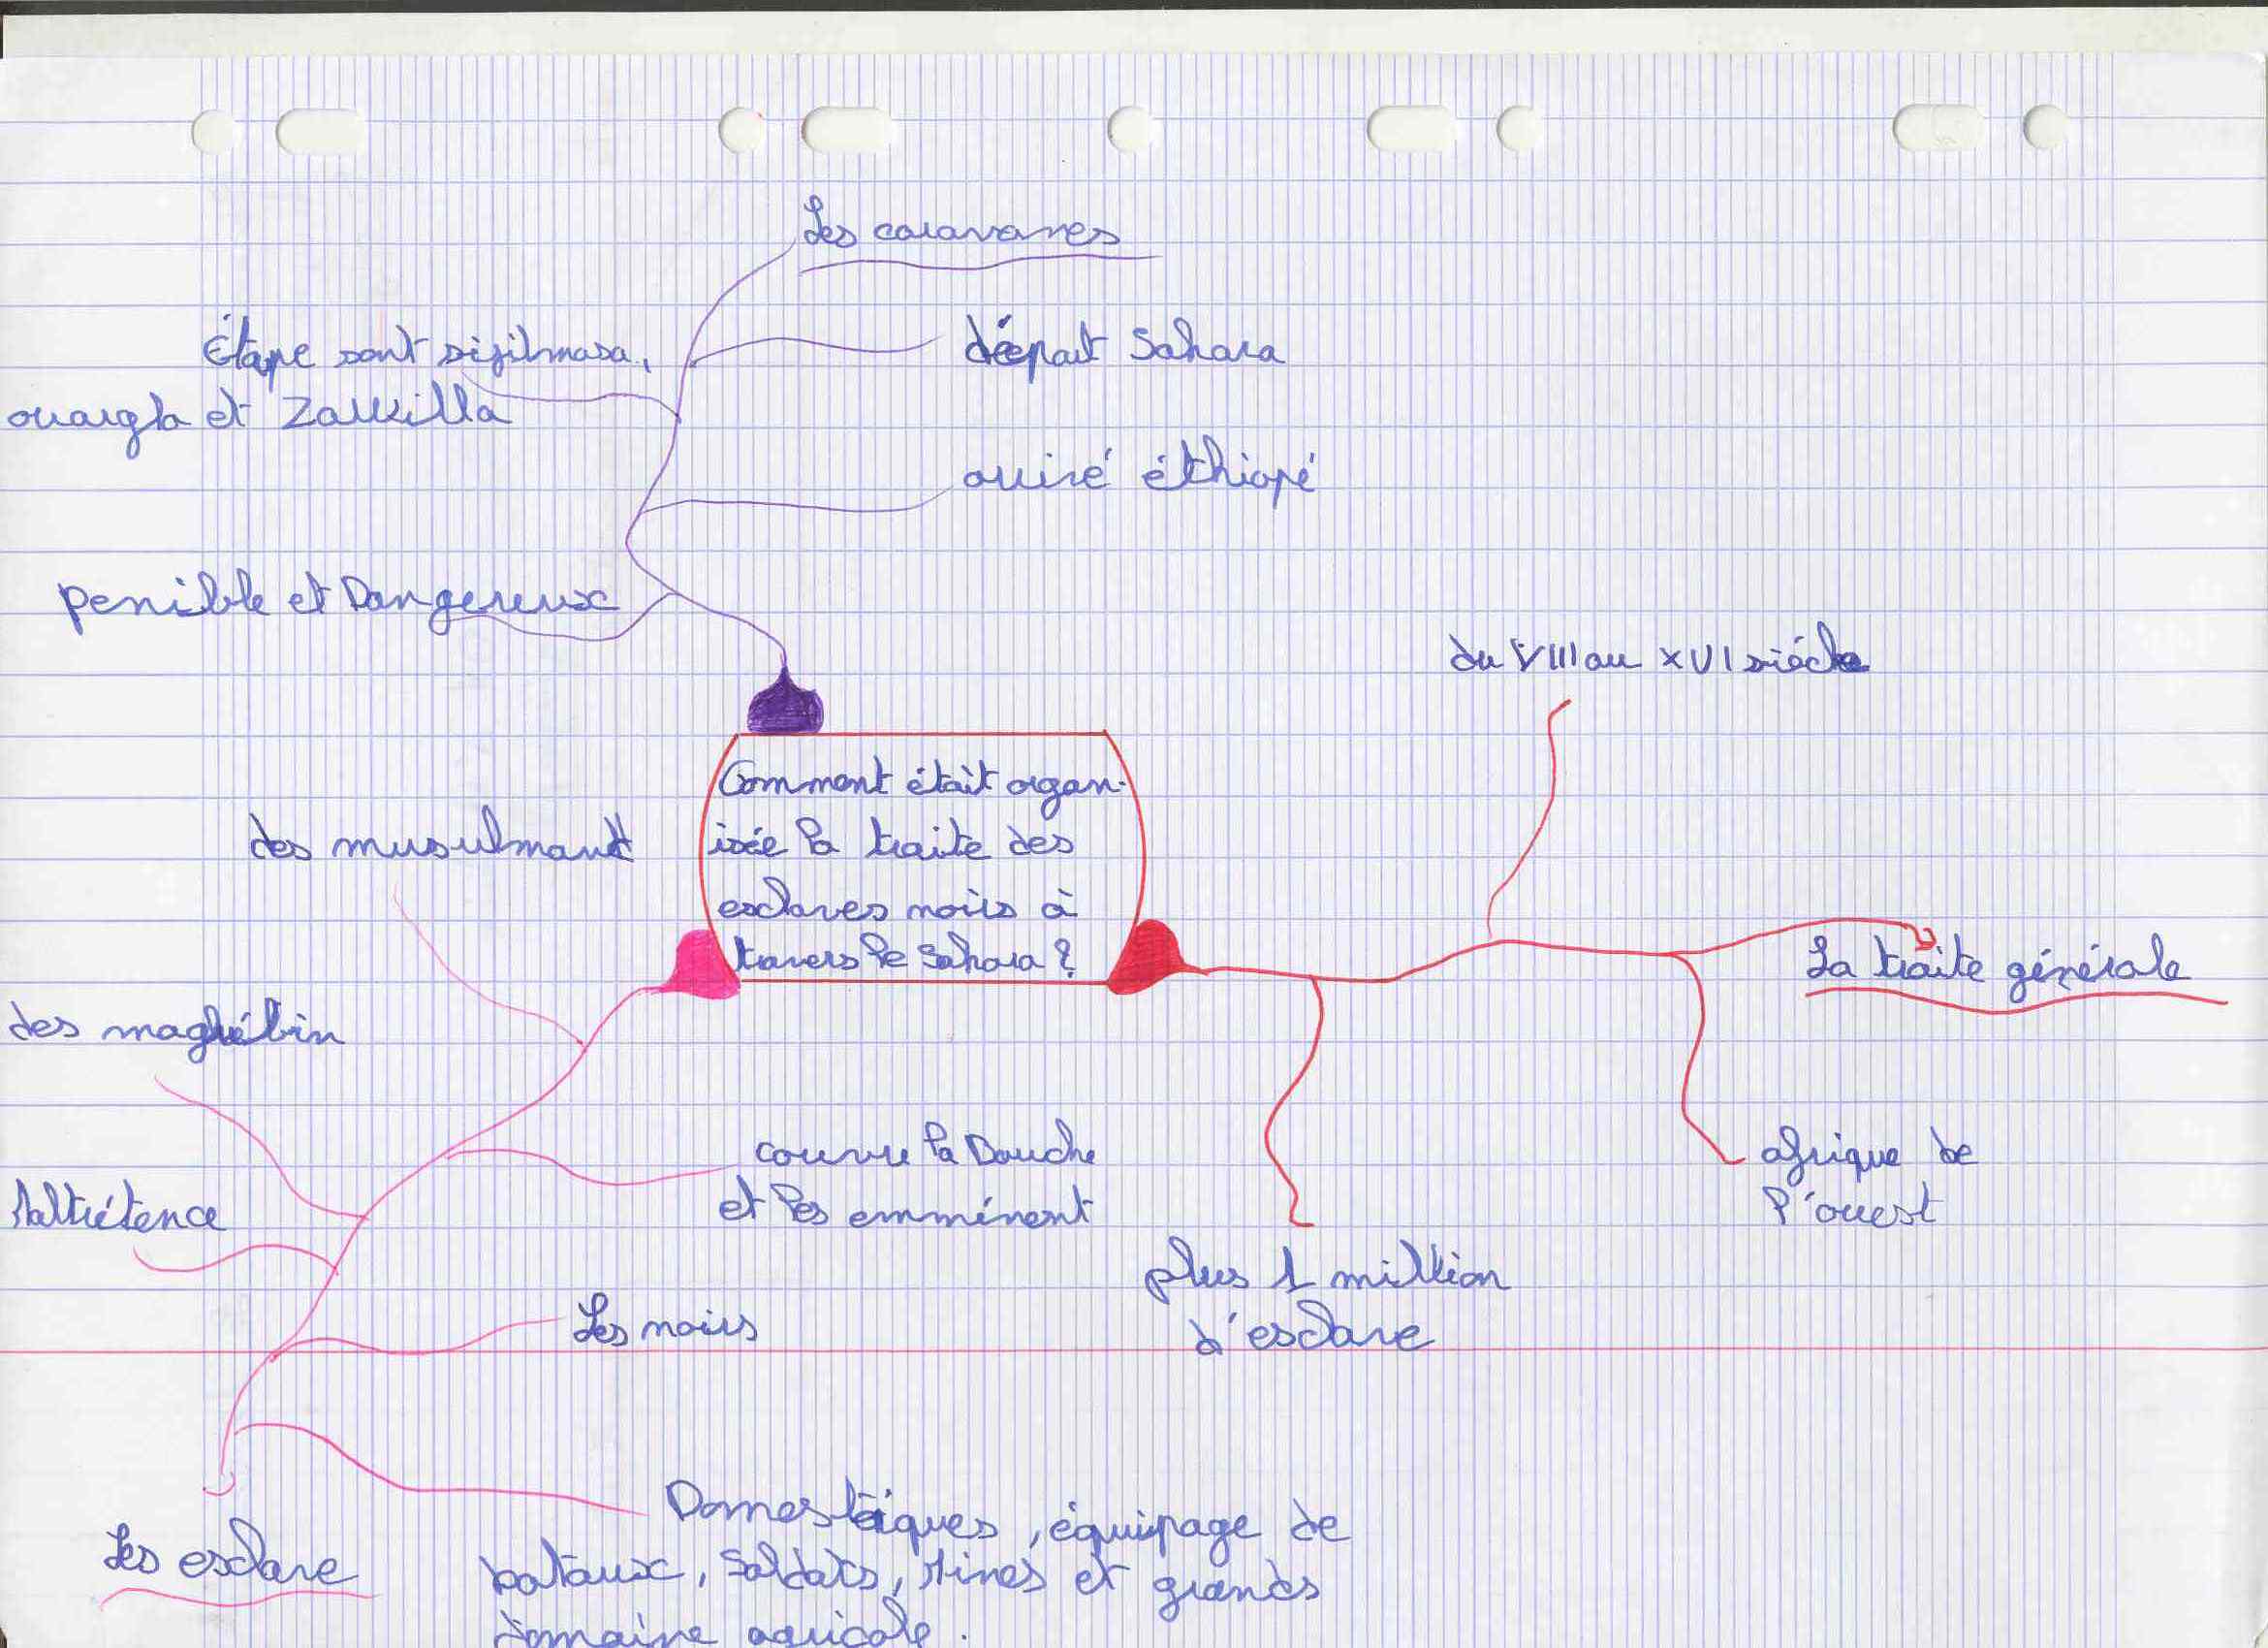 Les caravanes
Étape sont sijilmasa,
ouargla et Zawilla
départ Sahara
arrivé éthiopé
penible et Dangereux
du VIII au XVI siécle
Comment étàit organ-
isée la traite des
esclaves noirs à
travers le Sahara ?
des musulmans
des maghébin
La traite générale
couvre la Bouche
et les emménent
afrique de
l'ouest
Maltrétence
plus 1 million
d'esclave
Les noirs
Domestiques, équipage de
bataux, Soldats, Mines et grands
domaine agricole.
Les esclave